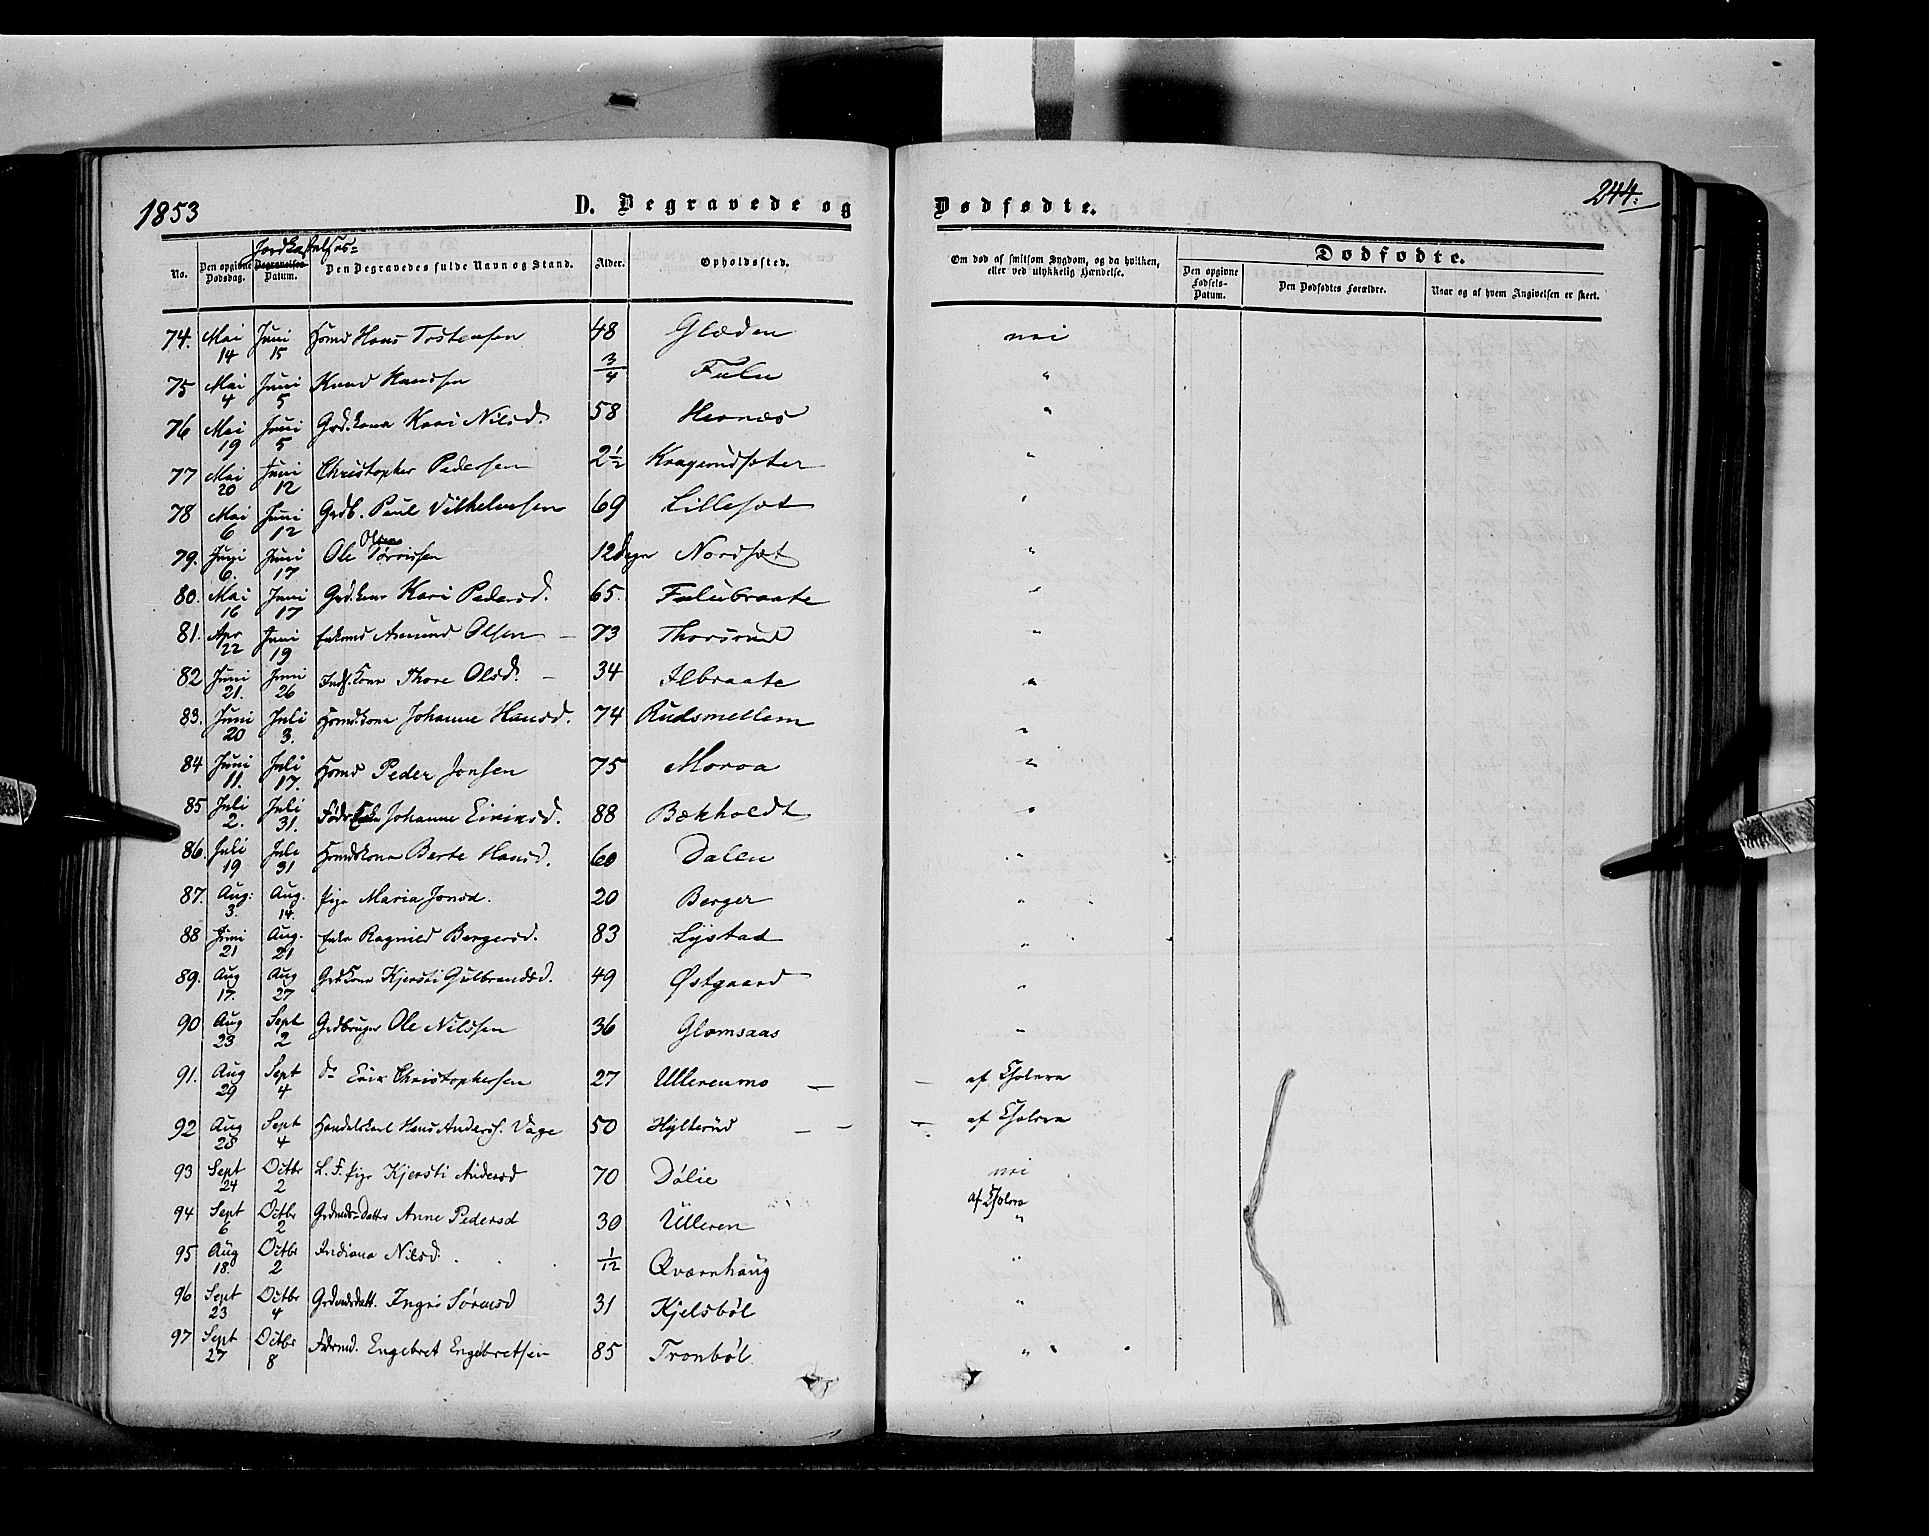 1853
D. Begravede og Dødfødte.
244.
No.
Den opgivne Dødsdag.
Jordkastelses=
Begravelses Datum.
Den Begravedes fulde Navn og Stand.
Alder.
Opholdssted.
Om død af smitsom Sygdom, og da hvilken, eller ved ulykkelig Hændelse.
Dødfødte.
Den opgivne Fødsels-Datum.
Den Dødfødtes Forældre.
Naar og af hvem Angivelsen er skeet.
74. Mai 14 Juni 15 Hans Tostensen 48 Glæden nei
75 Mai 4 Juni 5 Knud Hansen 3/4 Fulu "
76 Mai 19 Juni 5 Grd.kone Kari Nilsd. 58 Hernæs "
77 Mai 20 Juni 12 Christopher Pedersen 2 1/2 Kragerudsæter "
78 Mai 6 Juni 12 Grdb. Paul Vilhelmsen 69 Lillesæt "
79. Juni 6. Juni 17 Ole Olsen 12 Dage Nordsæt "
80. Mai 16 Juni 17 Grd.kone Kari Pedersd. 65. Fulubraate "
81. Apr 22 Juni 19 Enkemd Amund Olsen – 73 Thorsrud "
82 Juni 21. Juni 26 Inds.kone Thore Olsd. – 34 Ilbraate "
83. Juni 20 Juli 3. Hsmdkone Johanne Hansd. 74 Rudsmellem "
84 Juni 11. Juli 17. Hsmd Peder Jonsen 75 Moroa "
85 Juli 2. Juli 31. Føderenke Johanne Eiriksd. 88 Bækholdt "
86. Juli 19 Juli 31 Hsmdkone Berte Hansd. 60 Dalen "
87. Aug: 3. Aug. 14. Pige Maria Jonsd. 20 Berger "
88 Juni 21 Aug. 21 Enke Ragnild Bergersd. 83 Lystad "
89. Aug 17. Aug 27 Grdkone Kjersti Gulbrandsd. 49 Østgaard "
90 Aug 23 Sept 2 Grdbruger Ole Nilssen 36 Glomsaas "
91. Aug 29 Sept 4 do Erik Christophersen 27 Ullerenmo – – af Cholera
92 Aug 28 Sept 4 Handelskarl Hans Anders. Vage 50 Hylterud – – – af Cholera
93 Sept 24 Octbr 2 L. F. Pige Kjersti Andersd 70 Dølie nei
94 Sept 6 Octbr 2 Grdmds=Datter Anne Pedersd 30 Ulleren af Cholera "
95 Aug 18. Octbr 2 Indiana Nilsd. 1/12 Qværnhaug "
96 Sept 23 Octbr 4 Grdmdsdatt. Ingri 31 Kjelsbøl "
97 Sept 27 Octbr 8 Fdrmd. Engebret Engebretsen 85 Tronbøl "